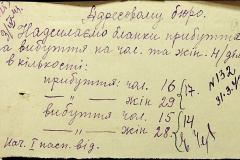 Адресовому бюро.
Надсилаємо бланки прибуття
та вибуття на чол. та жін. Н/дел
в кількості:
прибуття: чол. 16
—„— жін 29
вибуття чол. 15
—„— жін 28.
17.
14
№132
31.3.4
Нач. I пасп. від.